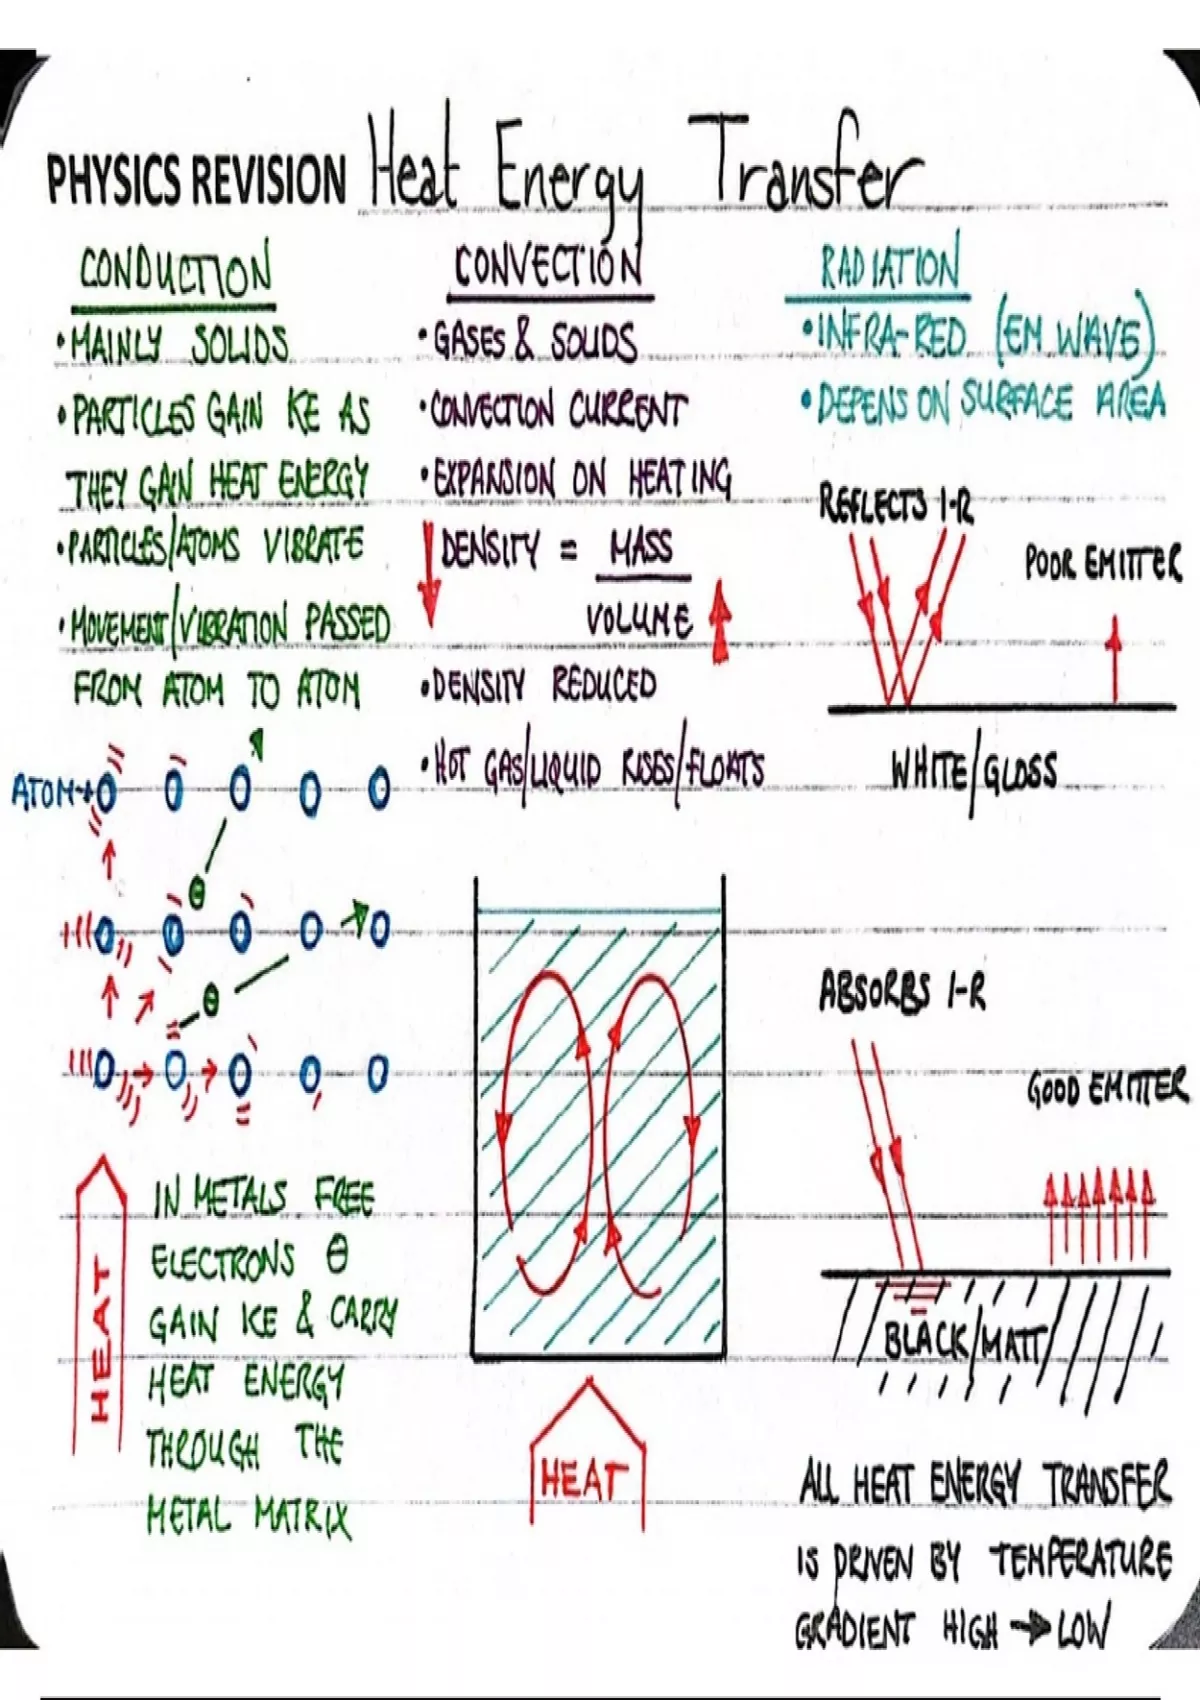 PHYSICS REVISION Heat Energy Transfer
CONDUCTION
• MAINLY SOLIDS
• PARTICLES GAIN KE AS
THEY GAIN HEAT ENERGY
• PARTICLES/ATOMS VIBRATE
• MOVEMENT/VIBRATION PASSED
FROM ATOM TO ATOM
ATOM
HEAT
IN METALS FREE
ELECTRONS ⊖
GAIN KE & CARRY
HEAT ENERGY
THROUGH THE
METAL MATRIX
CONVECTION
• GASES & SOLIDS
• CONVECTION CURRENT
• EXPANSION ON HEATING
↓ DENSITY = MASS
VOLUME ↑
• DENSITY REDUCED
• HOT GAS/LIQUID RISES/FLOATS
HEAT
RADIATION
• INFRA-RED (EM WAVE)
• DEPENS ON SURFACE AREA
REFLECTS I-R
POOR EMITTER
WHITE/GLOSS
ABSORBS I-R
GOOD EMITTER
BLACK/MATT
ALL HEAT ENERGY TRANSFER
IS DRIVEN BY TEMPERATURE
GRADIENT HIGH → LOW